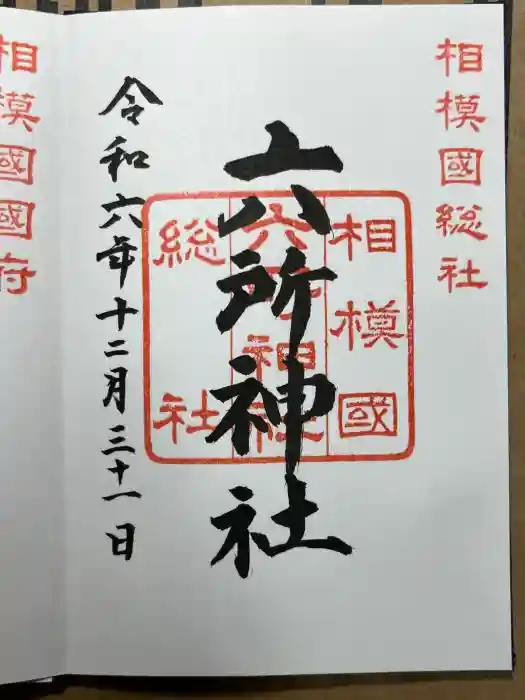 相模國総社
六所神社
相模國
六所神社
総社
令和六年十二月三十一日
相模國國府